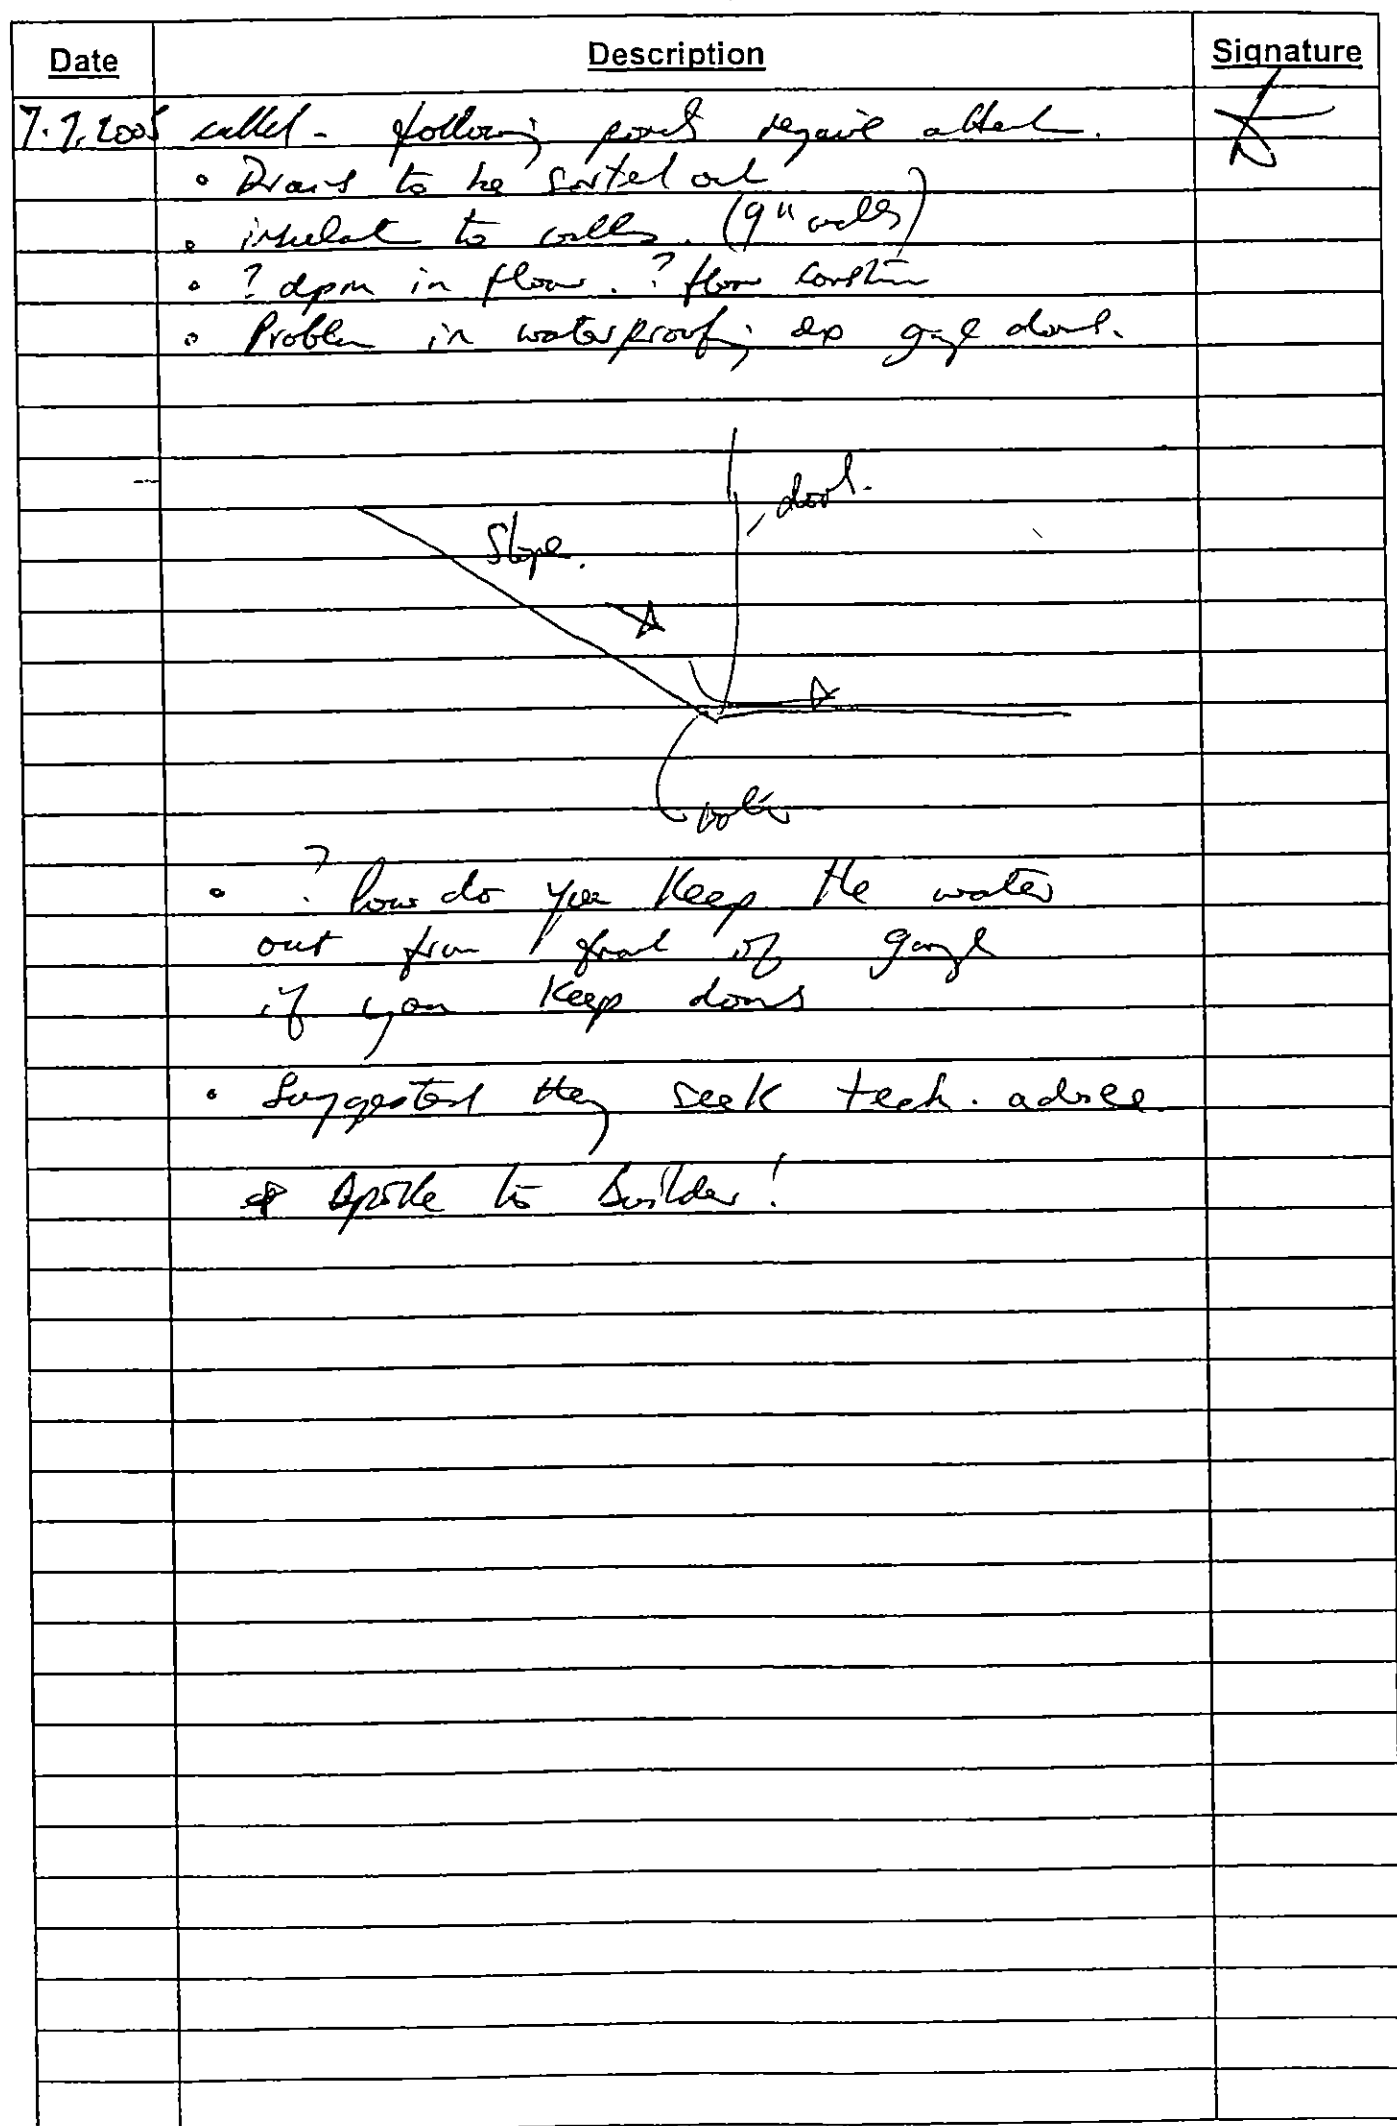 Date Description Signature
7.7.2005 called - following points require attent.
• Drains to be sorted out
• insulat to walls. (9" walls)
• ? dpm in floor. ? floor constn
• Problem in waterproofing garage doors.
door.
Slope.
water
• ? how do you keep the water
out from front of garage
if you keep doors
• Suggested they seek tech. advice
Spoke to Builder!